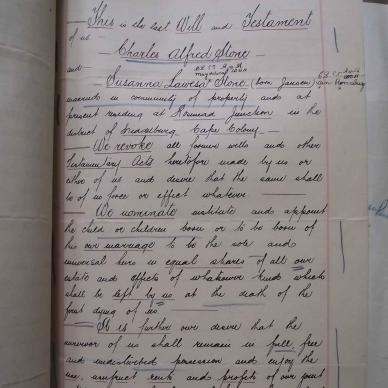 This is the last Will and Testament
of us
Charles Alfred Stone
and
Susanna Stone (born Jansen)
married in community of property and at
present residing at Rosmead Junction in the
district of Cape Colony.
We revoke all former wills and other
Testamentary Acts heretofore made by us or
either of us and desire that the same shall
be of no force or effect whatever
We nominate institute and appoint
the child or children born or to be born of
this our marriage to be the sole and
universal heirs in equal shares of all our
estate and effects of whatever kind which
shall be left by us at the death of the
first dying of us
It is further our desire that the
survivor of us shall remain in full free
and undisturbed possession and enjoy the
use, usufruct rents and profits of our joint